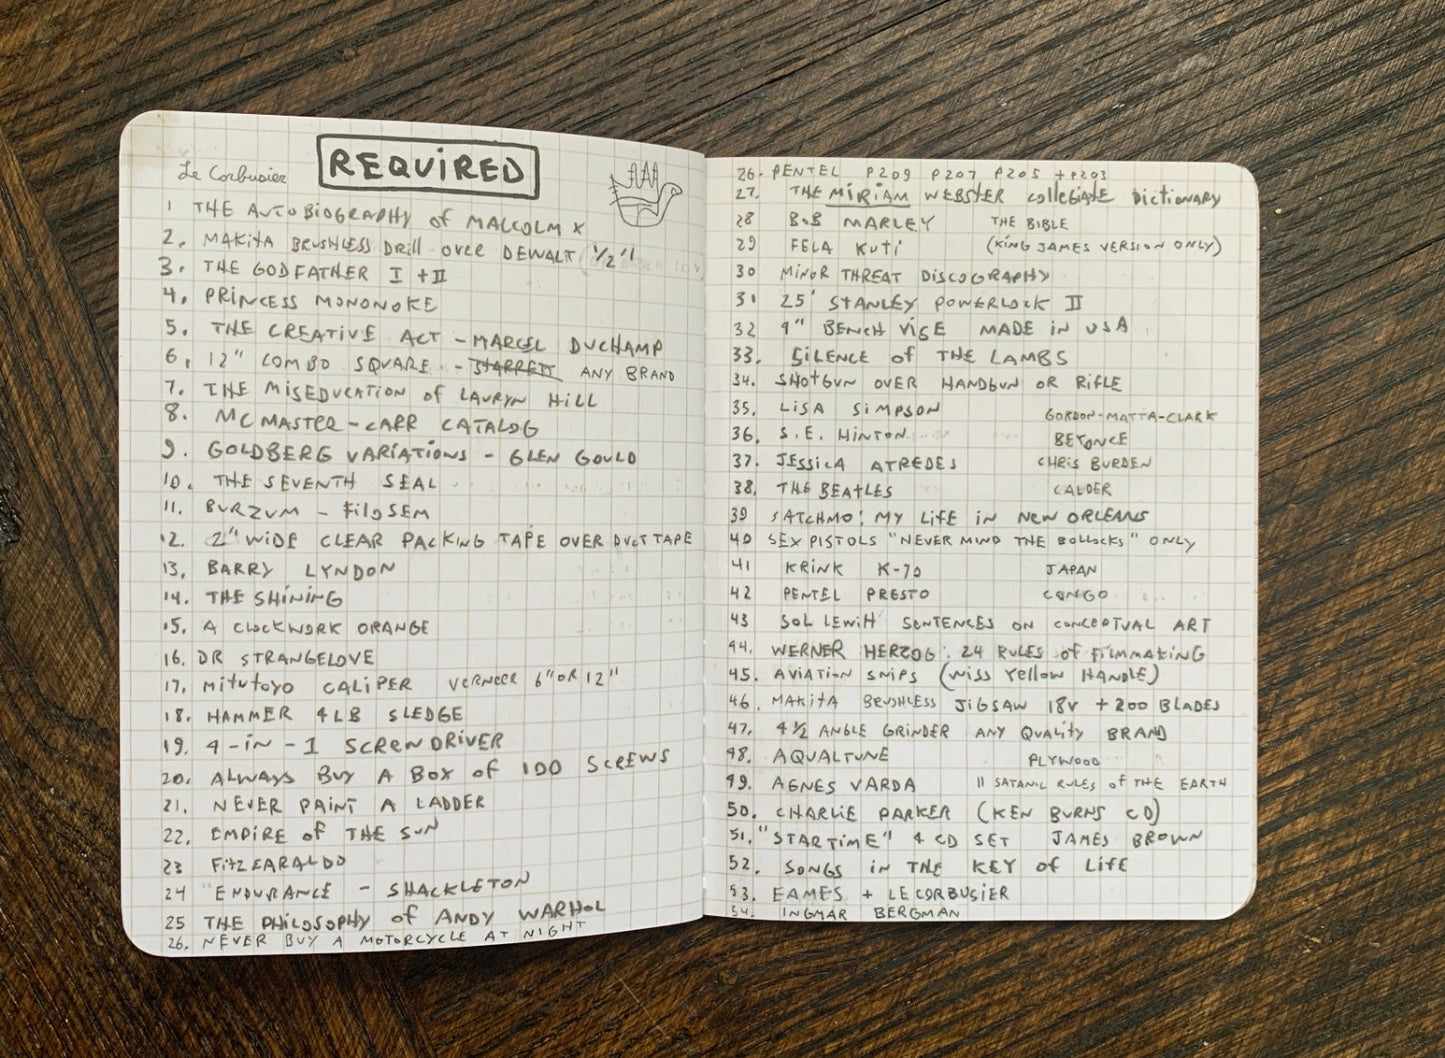 Le Corbusier
REQUIRED
1 THE AUTOBIOGRAPHY of MALCOLM X
2. MAKITA BRUSHLESS DRILL OVER DEWALT (1/2")
3. THE GODFATHER I + II
4. PRINCESS MONONOKE
5. THE CREATIVE ACT - MARCEL DUCHAMP
6. 12" COMBO SQUARE - STARRETT ANY BRAND
7. THE MISEDUCATION of LAURYN HILL
8. MCMASTER-CARR CATALOG
9. GOLDBERG VARIATIONS - GLEN GOULD
10. THE SEVENTH SEAL
11. BURZUM - FILOSEM
12. 2" WIDE CLEAR PACKING TAPE OVER DUCT TAPE
13. BARRY LYNDON
14. THE SHINING
15. A CLOCKWORK ORANGE
16. DR STRANGELOVE
17. MITUTOYO CALIPER VERNEER 6" OR 12"
18. HAMMER 4LB SLEDGE
19. 4-IN-1 SCREWDRIVER
20. ALWAYS BUY A BOX of 100 SCREWS
21. NEVER PAINT A LADDER
22. EMPIRE of THE SUN
23 FITZCARALDO
24 ENDURANCE - SHACKLETON
25 THE PHILOSOPHY of ANDY WARHOL
26. NEVER BUY A MOTORCYCLE AT NIGHT
26. PENTEL P209 P207 P205 + P203
27. THE MIRIAM WEBSTER COLLEGIATE DICTIONARY
28 BOB MARLEY THE BIBLE
29 FELA KUTI (KING JAMES VERSION ONLY)
30 MINOR THREAT DISCOGRAPHY
31 25' STANLEY POWERLOCK II
32 4" BENCH VISE MADE IN USA
33. SILENCE of THE LAMBS
34. SHOTGUN OVER HANDGUN OR RIFLE
35. LISA SIMPSON GORDON-MATTA-CLARK
36. S.E. HINTON BEYONCE
37. JESSICA ATREDES CHRIS BURDEN
38. THE BEATLES CALDER
39 SATCHMO: MY LIFE IN NEW ORLEANS
40 SEX PISTOLS "NEVER MIND THE BOLLOCKS" ONLY
41 KRINK K-70 JAPAN
42 PENTEL PRESTO CONGO
43 SOL LEWITT SENTENCES ON CONCEPTUAL ART
44. WERNER HERZOG: 24 RULES of FILMMAKING
45. AVIATION SNIPS (WISS YELLOW HANDLE)
46. MAKITA BRUSHLESS JIGSAW 18V + 200 BLADES
47. 4 1/2 ANGLE GRINDER ANY QUALITY BRAND
48. AQUALTUNE PLYWOOD
49. AGNES VARDA 11 SATANIC RULES of THE EARTH
50. CHARLIE PARKER (KEN BURNS CD)
51. "STAR TIME" 4 CD SET JAMES BROWN
52. SONGS IN THE KEY of LIFE
53. EAMES + LECORBUSIER
54. INGMAR BERGMAN